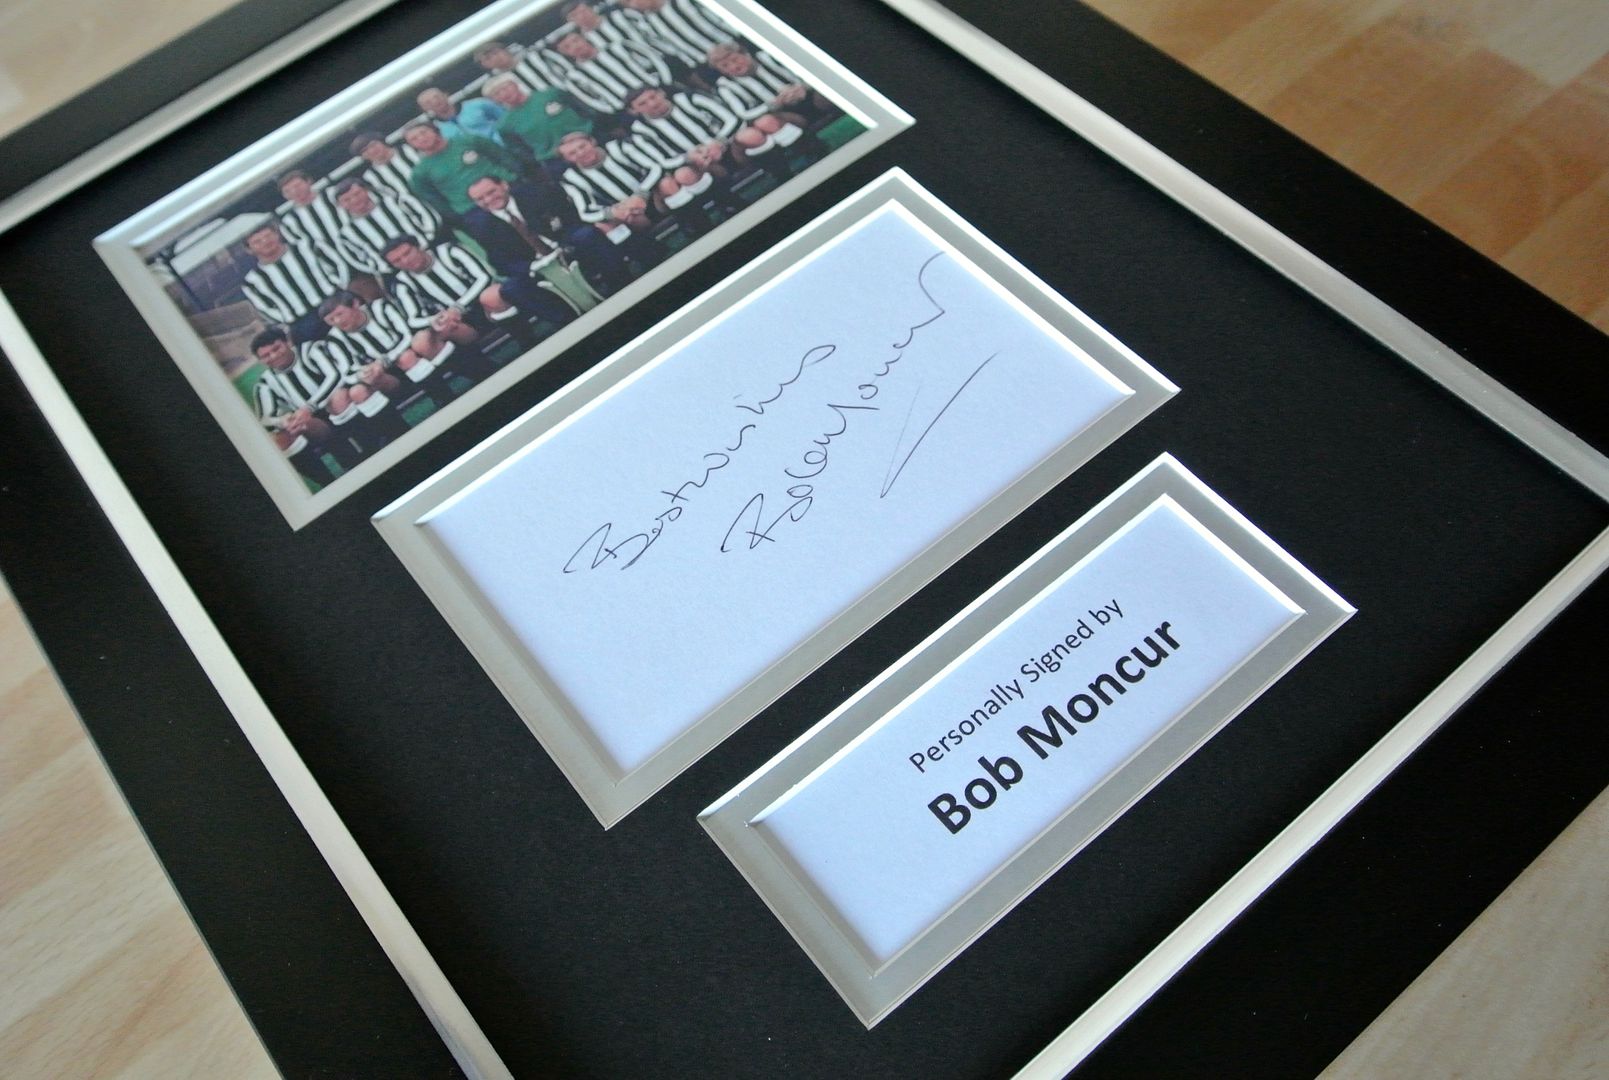 Best wishes
Bob Moncur
Personally Signed by
Bob Moncur